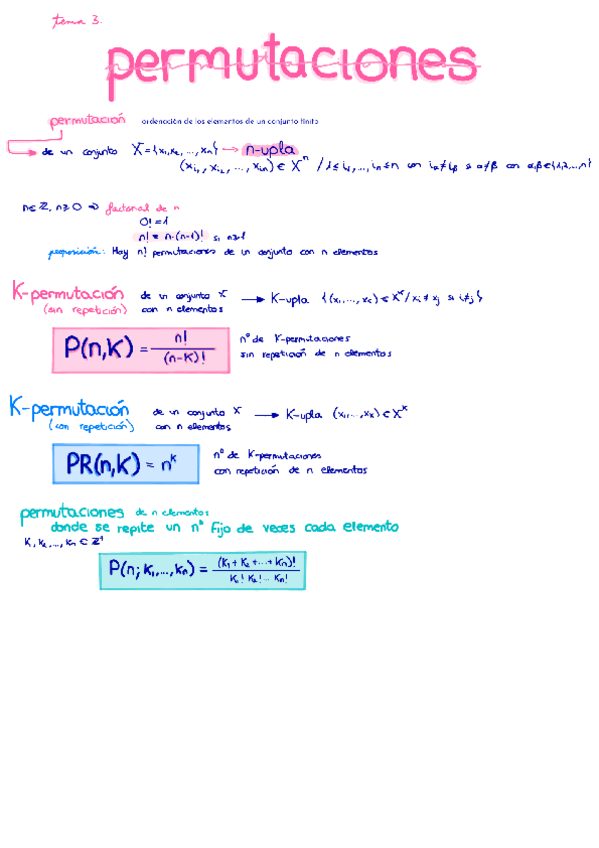 tema 3.
permutaciones
permutación ordenación de los elementos de un conjunto finito
de un conjunto X = {x₁, x₂, ..., xₙ} → n-upla
(xᵢ₁, xᵢ₂, ..., xᵢₙ) ∈ Xⁿ / 1 ≤ i₁, ..., iₙ ≤ n con iα ≠ iβ si α ≠ β con α, β ∈ {1, 2, ..., n}
n ∈ ℤ, n ≥ 0 ⇒ factorial de n
0! = 1
n! = n·(n-1)! si n ≥ 1
proposición: Hay n! permutaciones de un conjunto con n elementos
K-permutación de un conjunto X → K-upla {(x₁, ..., xₖ) ∈ Xᴷ / xᵢ ≠ xⱼ si i ≠ j}
(sin repetición) con n elementos
P(n,K) = n! / (n-K)!
nº de K-permutaciones
sin repetición de n elementos
K-permutación de un conjunto X → K-upla (x₁, ..., xₖ) ∈ Xᴷ
(con repetición) con n elementos
PR(n,K) = nᴷ
nº de K-permutaciones
con repetición de n elementos
permutaciones de n elementos
donde se repite un nº fijo de veces cada elemento
K₁, K₂, ..., Kₙ ∈ ℤ⁺
P(n; K₁, ..., Kₙ) = (K₁ + K₂ + ... + Kₙ)! / K₁! K₂! ... Kₙ!